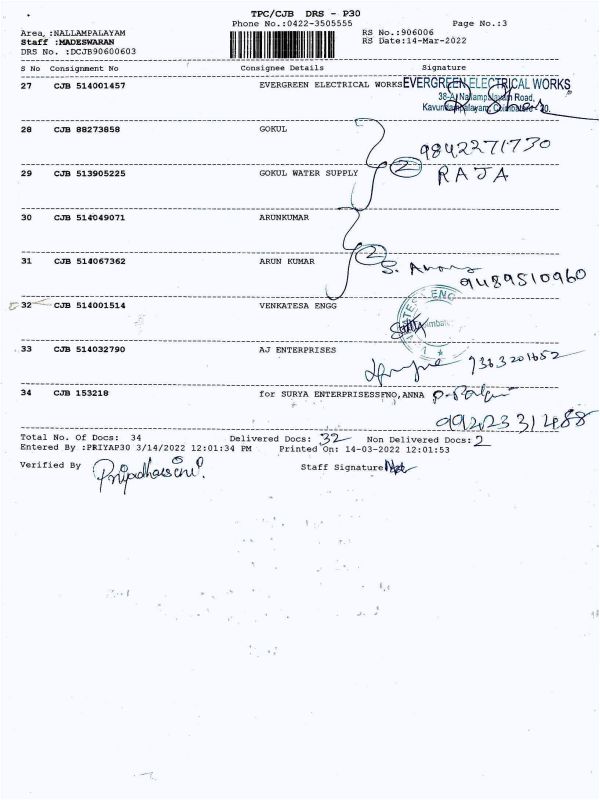 TPC/CJB DRS - P30
Phone No.:0422-3505555 Page No.:3
Area :NALLAMPALAYAM RS No.:906006
Staff :MADESWARAN RS Date:14-Mar-2022
DRS No. :DCJB90600603
S No Consignment No Consignee Details Signature
27 CJB 514001457 EVERGREEN ELECTRICAL WORKS EVERGREEN ELECTRICAL WORKS
38-A, Nallampalayam Road,
Kavundampalayam, Coimbatore - 30.
28 CJB 88273858 GOKUL
9842271730
29 CJB 513905225 GOKUL WATER SUPPLY 2 RAJA
30 CJB 514049071 ARUNKUMAR
31 CJB 514067362 ARUN KUMAR 2
9489510960
32 CJB 514001514 VENKATESA ENGG
33 CJB 514032790 AJ ENTERPRISES
9363201652
34 CJB 153218 for SURYA ENTERPRISESSFNO,ANNA
Total No. Of Docs: 34 Delivered Docs: 32 Non Delivered Docs: 2
Entered By :PRIYAP30 3/14/2022 12:01:34 PM Printed On: 14-03-2022 12:01:53
Verified By Priyadharsini P. Staff Signature